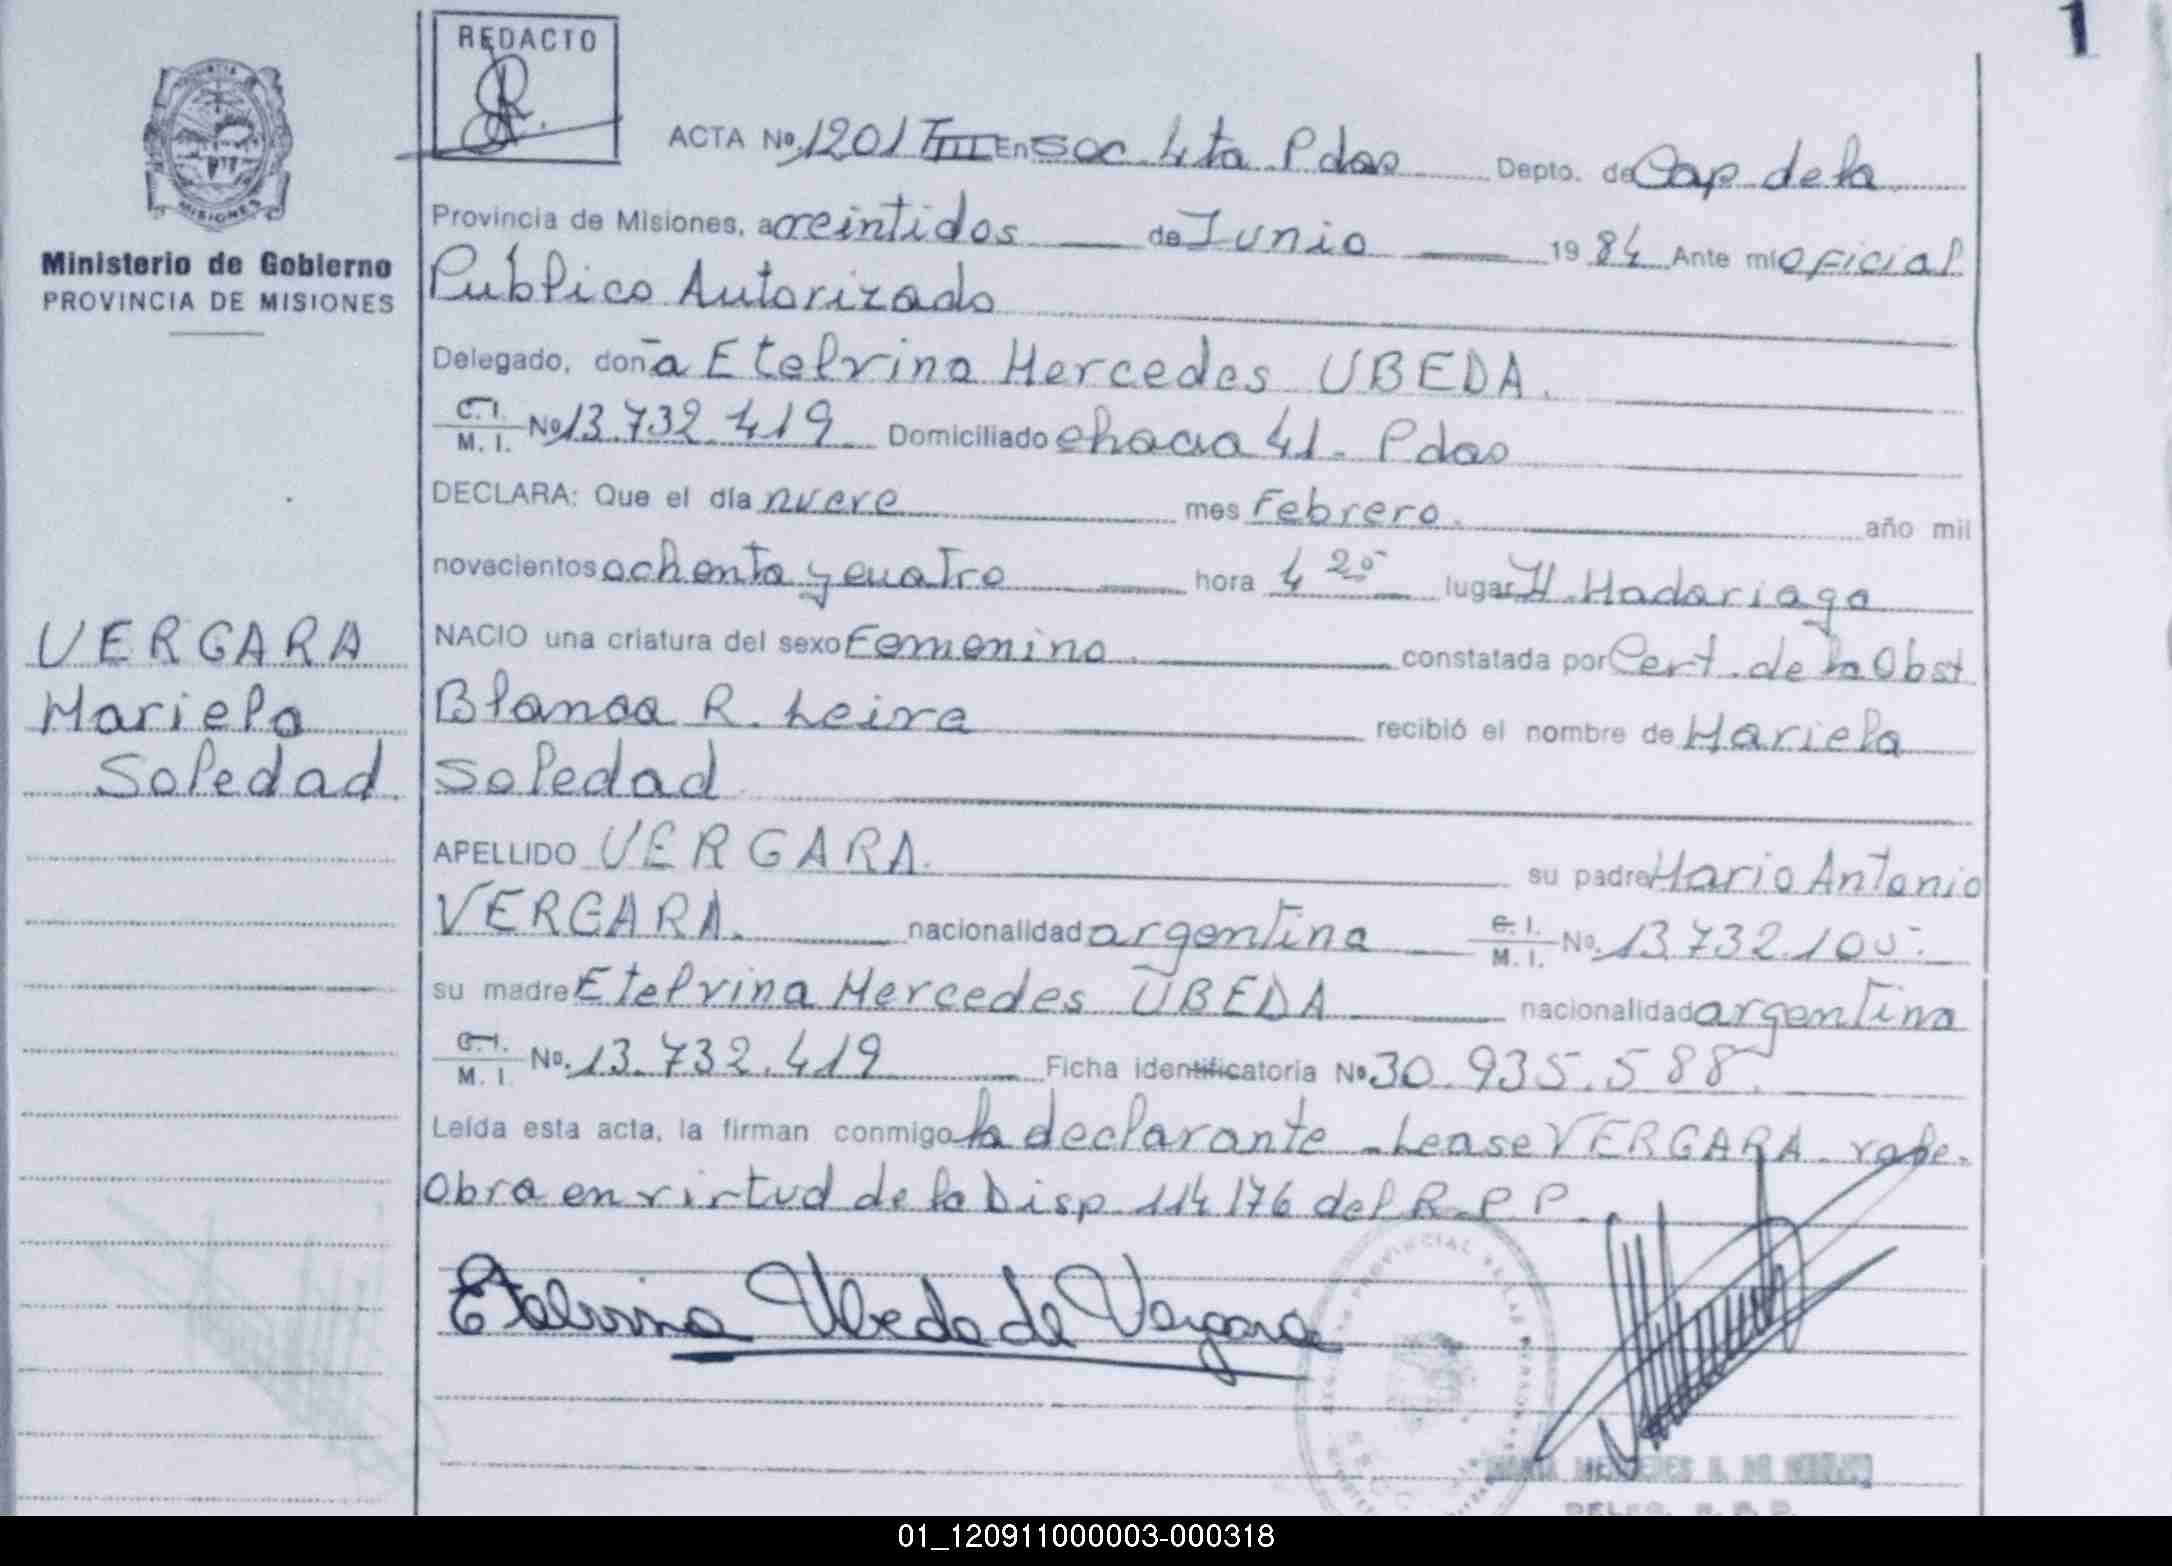 1
REDACTO
MISIONES
Ministerio de Gobierno
PROVINCIA DE MISIONES
ACTA Nº 1201 TIII En Soc. 4ta Pdas Depto. de Cap de la
Provincia de Misiones, a veintidos de Junio 1984 Ante mi Oficial
Público Autorizado
Delegado, doña Etelvina Mercedes UBEDA.
C.I. M.I. Nº 13.732.419 Domiciliado chacra 41. Pdas
DECLARA: Que el día nueve mes Febrero. año mil
novecientos ochenta y cuatro hora 4 20 lugar H. Madariaga
NACIO una criatura del sexo Femenino. constatada por Cert. de la Obst
Blanca R. Leiva recibió el nombre de Mariela
Soledad
APELLIDO VERGARA. su padre Mario Antonio
VERGARA. nacionalidad argentina C.I. M.I. Nº. 13.732.105.
su madre Etelvina Mercedes UBEDA nacionalidad argentina
C.I. M.I. Nº. 13.732.419 Ficha identificatoria Nº 30.935.588.
Leída esta acta, la firman conmigo la declarante - Lease VERGARA - vale.
Obra en virtud de la Disp. 114/76 del R.P.P.
VERGARA
Mariela
Soledad
Etelvina Ubeda de Vergara
01_120911000003-000318